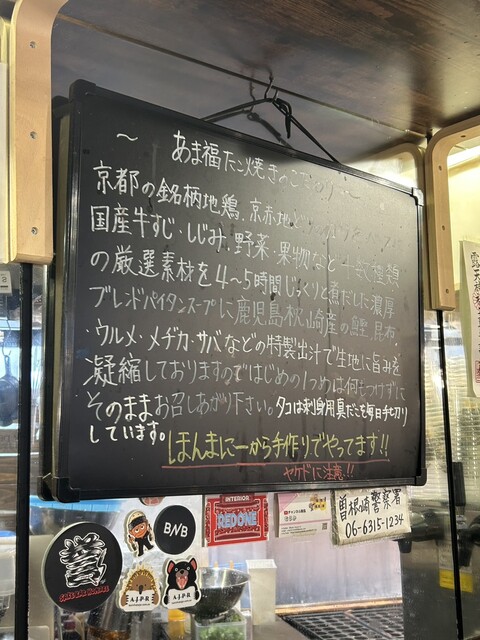 ～ あま福たこ焼きのこだわり ～
京都の銘柄地鶏、京赤地ど
国産牛すじ・しじみ、野菜・果物など十数種類
の厳選素材を4～5時間じっくりと煮だした濃厚
ブレンドパイタンスープに鹿児島枕崎産の鰹、昆布
・ウルメ・メヂカ・サバなどの特製出汁で生地に旨みを
凝縮しておりますのではじめの1つめは何もつけずに
そのままお召しあがり下さい。タコは刺身用真だこを毎日手切り
しています。
ほんまに一から手作りでやってます!!
ヤケドに注意!!
INTERIOR
REDONE
曽根崎警察署
06-6315-1234
BNB
A.J.P.R
A.J.P.R